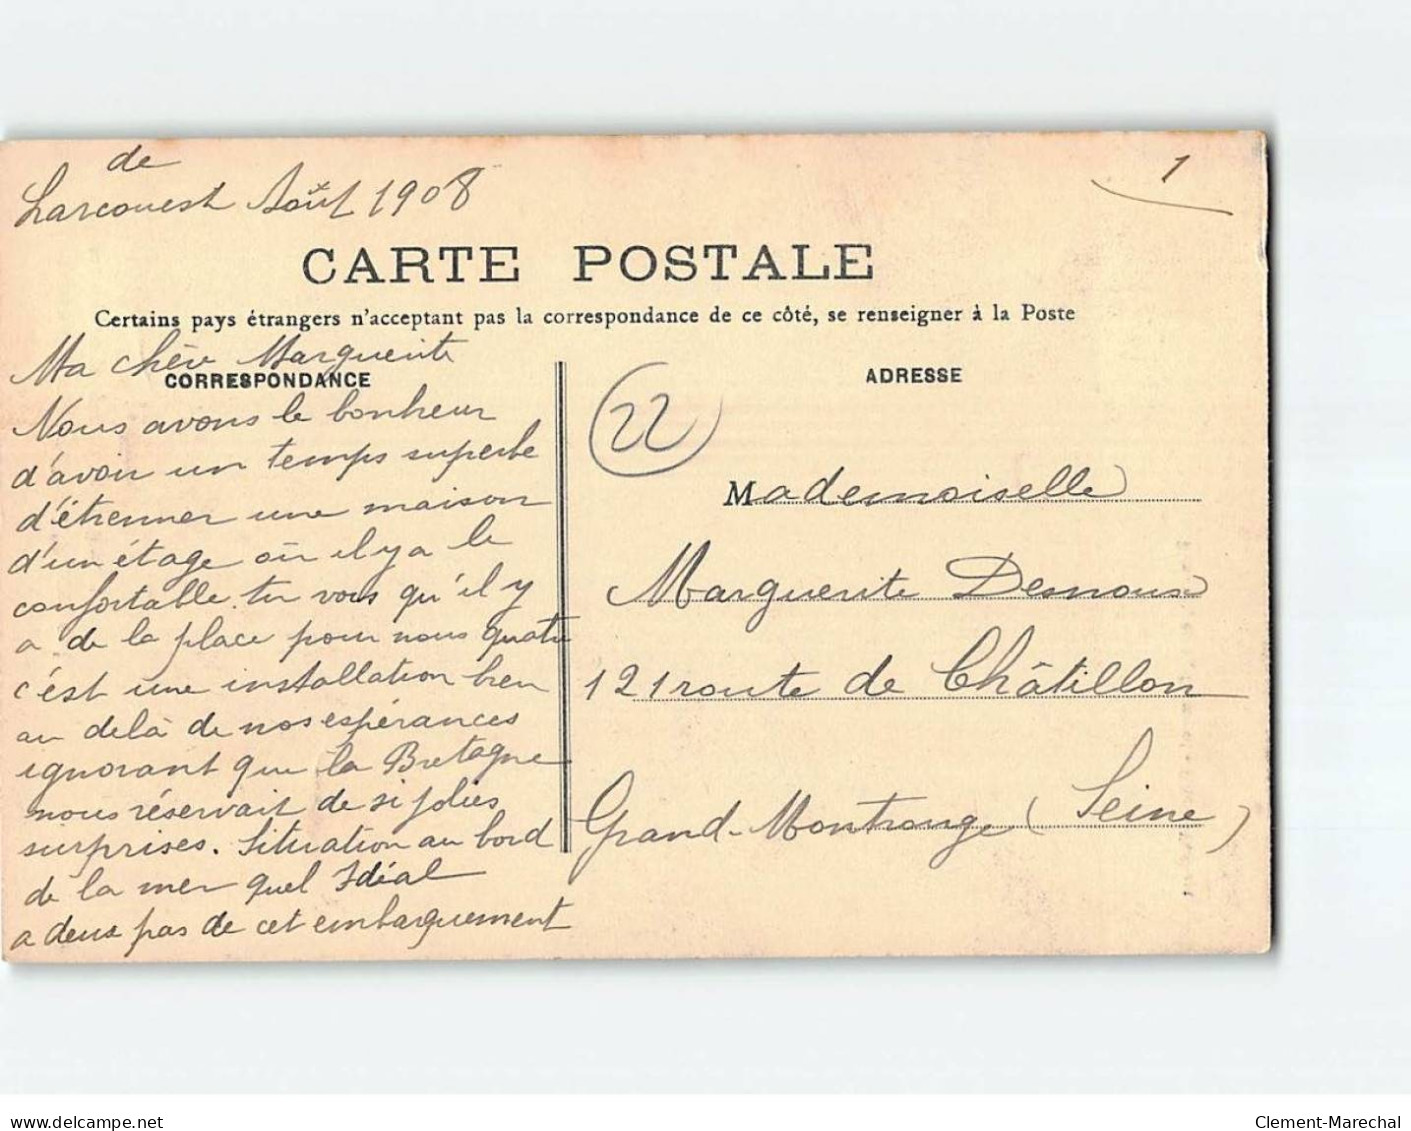 de
Larcouest Août 1908
1
CARTE POSTALE
Certains pays étrangers n'acceptant pas la correspondance de ce côté, se renseigner à la Poste
Ma chère Marguerite
CORRESPONDANCE
Nous avons le bonheur
d'avoir un temps superbe
d'étrenner une maison
d'un étage où il y a le
confortable. tu vois qu'il y
a de la place pour nous quatre
c'est une installation bien
au delà de nos espérances
ignorant que la Bretagne
nous réservait de si jolies
surprises. Situation au bord
de la mer quel Idéal
a deux pas de cet embarquement
ADRESSE
22
Mademoiselle
Marguerite Desnoux
121 route de Châtillon
Grand-Montrouge (Seine)
www.delcampe.net
Clement-Marechal